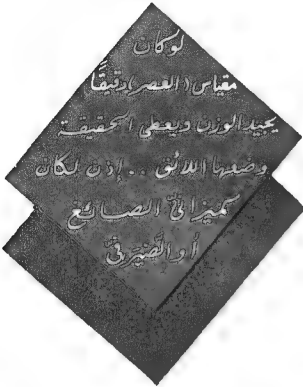 لو كان
مقياس (العصر) دقيقًا
يجيد الوزن ويعطي الحقيقة
وضعها اللائق .. إذن لكان
كميزانيّ الصائغ
أو الصَّيْرَفيّ